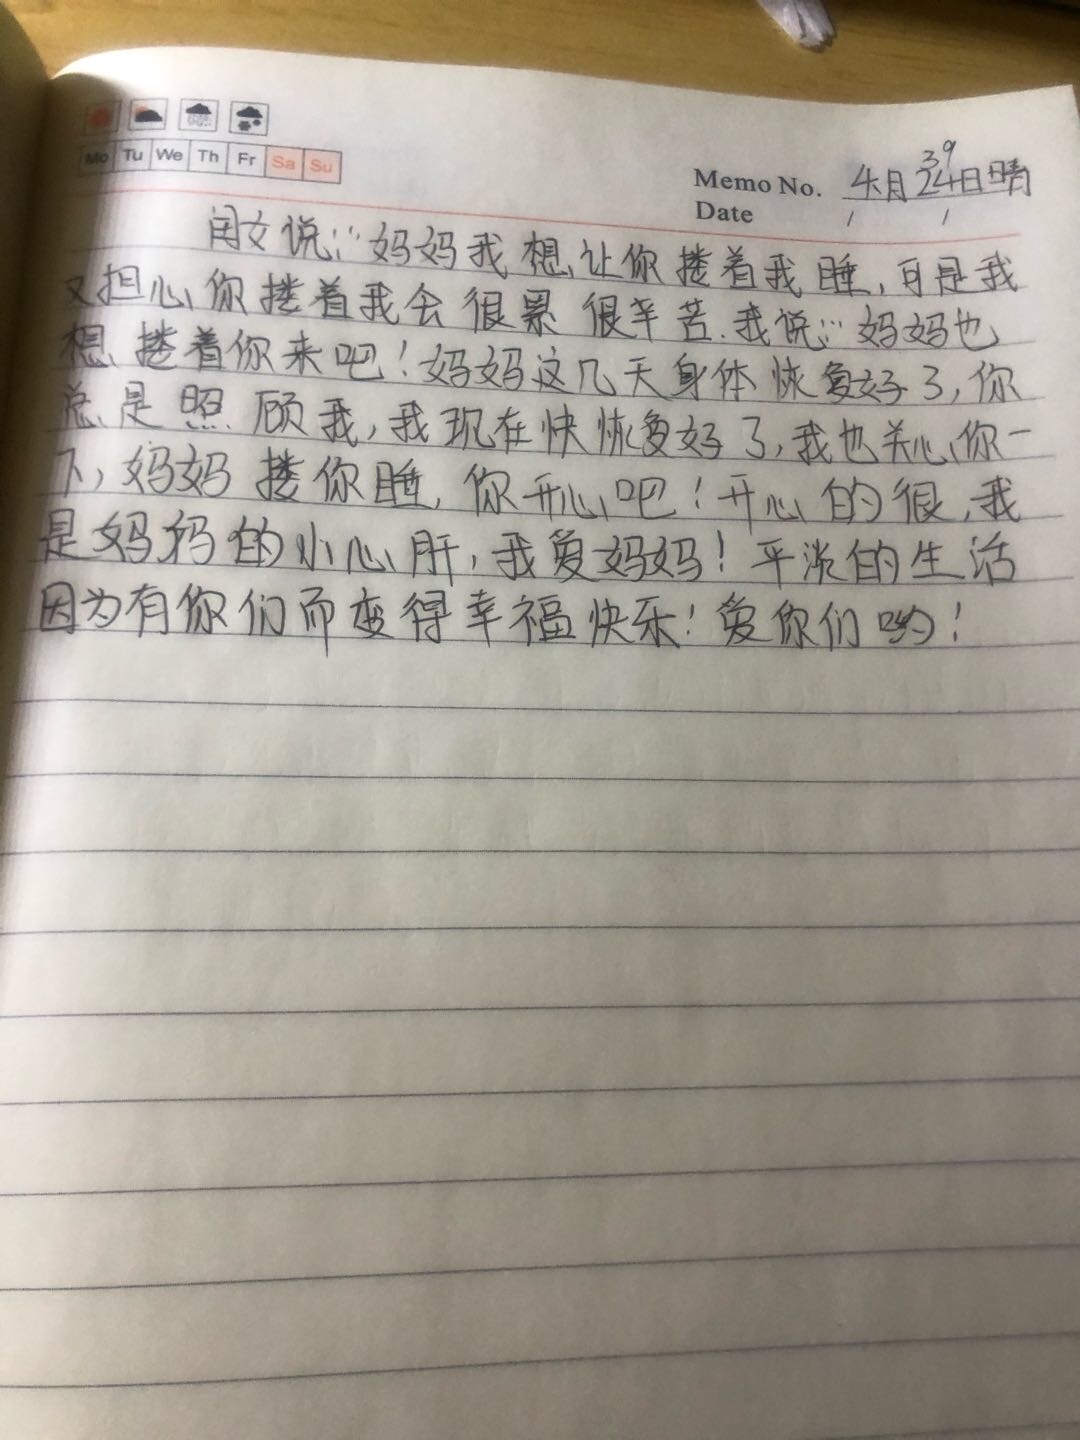 Mo Tu We Th Fr Sa Su
Memo No. 4月24日晴
39
Date / /
闺女说:“妈妈我想让你搂着我睡,可是我
又担心你搂着我会很累很辛苦.我说:“妈妈也
想搂着你来吧!妈妈这几天身体恢复好了,你
总是照顾我,我现在快恢复好了,我也关心你一
下,妈妈搂你睡,你开心吧!开心的很,我
是妈妈的小心肝,我爱妈妈!平淡的生活
因为有你们而变得幸福快乐!爱你们哟!